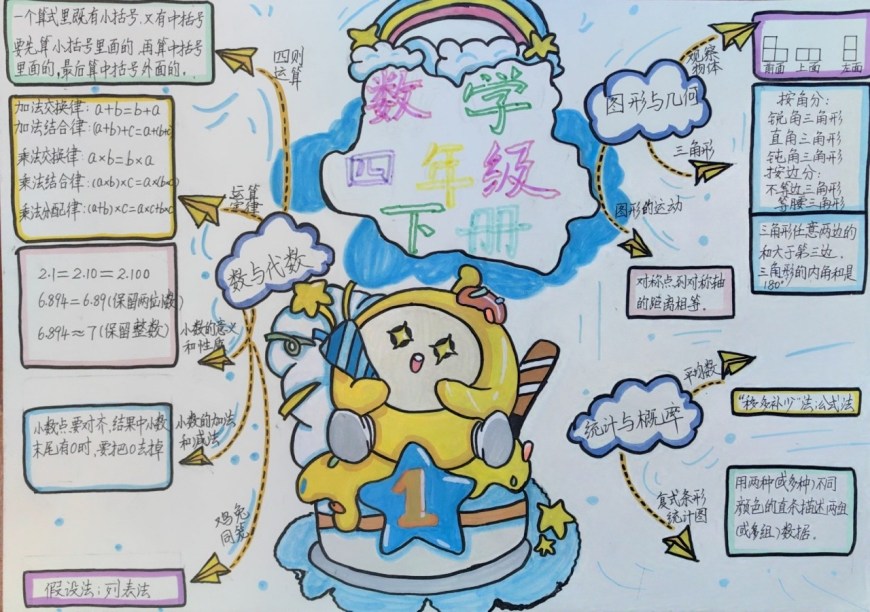 数 学
四 年 级
下 册
一个算式里既有小括号,又有中括号
要先算小括号里面的,再算中括号
里面的,最后算中括号外面的。
四则
运算
加法交换律:a+b=b+a
加法结合律:(a+b)+c=a+(b+c)
乘法交换律:a×b=b×a
乘法结合律:(a×b)×c=a×(b×c)
乘法分配律:(a+b)×c=a×c+b×c
运算
定律
数与代数
2.1=2.10=2.100
6.894≈6.89(保留两位小数)
6.894≈7(保留整数)
小数的意义
和性质
小数点要对齐,结果中小数
末尾有0时,要把0去掉
小数的加法
和减法
鸡兔
同笼
假设法;列表法
图形与几何
观察
物体
前面 上面 左面
三角形
按角分:
锐角三角形
直角三角形
钝角三角形
按边分:
不等边三角形
等腰三角形
三角形任意两边的
和大于第三边。
三角形的内角和是
180°
图形的运动
对称点到对称轴
的距离相等。
统计与概率
平均数
“移多补少”法;公式法
复式条形
统计图
用两种(或多种)不同
颜色的直条描述两组
(或多组)数据。
1